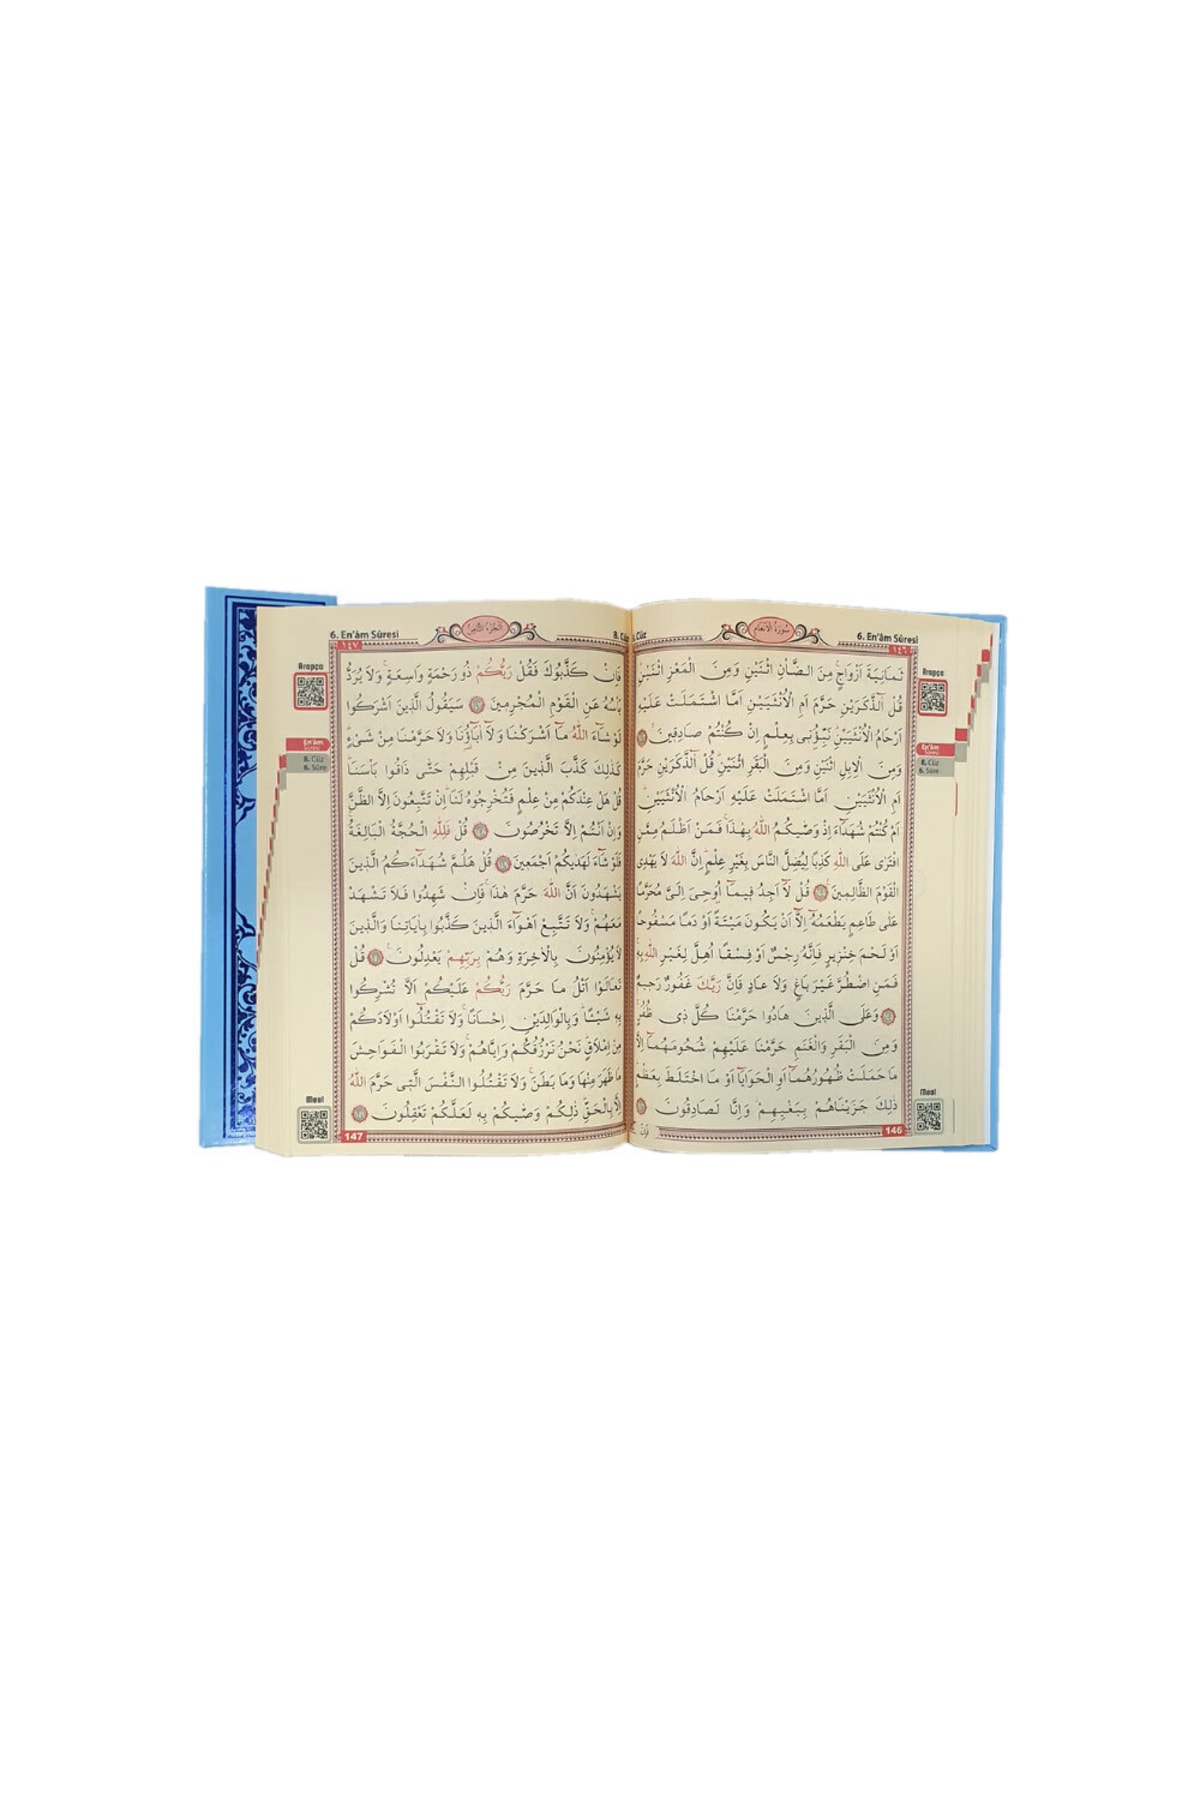 6. En'âm Sûresi
سُورَةُ الْاَنْعَامِ
8. Cüz
١٤٦
ثَمَانِيَةَ اَزْوَاجٍ مِنَ الضَّأْنِ اثْنَيْنِ وَمِنَ الْمَعْزِ اثْنَيْنِ
قُلْ آلذَّكَرَيْنِ حَرَّمَ اَمِ الْاُنْثَيَيْنِ اَمَّا اشْتَمَلَتْ عَلَيْهِ
اَرْحَامُ الْاُنْثَيَيْنِ نَبِّؤُنٖى بِعِلْمٍ اِنْ كُنْتُمْ صَادِقٖينَ ١٤٣
وَمِنَ الْاِبِلِ اثْنَيْنِ وَمِنَ الْبَقَرِ اثْنَيْنِ قُلْ آلذَّكَرَيْنِ حَرَّمَ
اَمِ الْاُنْثَيَيْنِ اَمَّا اشْتَمَلَتْ عَلَيْهِ اَرْحَامُ الْاُنْثَيَيْنِ
اَمْ كُنْتُمْ شُهَدَآءَ اِذْ وَصّٰيكُمُ اللّٰهُ بِهٰذَا فَمَنْ اَظْلَمُ مِمَّنِ
افْتَرٰى عَلَى اللّٰهِ كَذِبًا لِيُضِلَّ النَّاسَ بِغَيْرِ عِلْمٍ اِنَّ اللّٰهَ لَا يَهْدِى
الْقَوْمَ الظَّالِمٖينَ ١٤٤ قُلْ لَٓا اَجِدُ فٖيمَٓا اُوحِىَ اِلَىَّ مُحَرَّمًا
عَلٰى طَاعِمٍ يَطْعَمُهُٓ اِلَّٓا اَنْ يَكُونَ مَيْتَةً اَوْ دَمًا مَسْفُوحًا
اَوْ لَحْمَ خِنْزٖيرٍ فَاِنَّهُ رِجْسٌ اَوْ فِسْقًا اُهِلَّ لِغَيْرِ اللّٰهِ بِهٖ
فَمَنِ اضْطُرَّ غَيْرَ بَاغٍ وَلَا عَادٍ فَاِنَّ رَبَّكَ غَفُورٌ رَحٖيمٌ
١٤٥ وَعَلَى الَّذٖينَ هَادُوا حَرَّمْنَا كُلَّ ذٖى ظُفُرٍ
وَمِنَ الْبَقَرِ وَالْغَنَمِ حَرَّمْنَا عَلَيْهِمْ شُحُومَهُمَٓا اِلَّا
مَا حَمَلَتْ ظُهُورُهُمَٓا اَوِ الْحَوَايَٓا اَوْ مَا اخْتَلَطَ بِعَظْمٍ
ذٰلِكَ جَزَيْنَاهُمْ بِبَغْيِهِمْ وَاِنَّا لَصَادِقُونَ ١٤٦
146
فَاِنْ
Arapça
En'âm
Sûresi
8. Cüz
6. Sûre
Meal
8. Cüz
اَلْجُزْءُ الثَّامِنُ
6. En'âm Sûresi
١٤٧
فَاِنْ كَذَّبُوكَ فَقُلْ رَبُّكُمْ ذُو رَحْمَةٍ وَاسِعَةٍ وَلَا يُرَدُّ
بَأْسُهُ عَنِ الْقَوْمِ الْمُجْرِمٖينَ ١٤٧ سَيَقُولُ الَّذٖينَ اَشْرَكُوا
لَوْ شَٓاءَ اللّٰهُ مَٓا اَشْرَكْنَا وَلَٓا اٰبَٓاؤُنَا وَلَا حَرَّمْنَا مِنْ شَىْءٍ
كَذٰلِكَ كَذَّبَ الَّذٖينَ مِنْ قَبْلِهِمْ حَتّٰى ذَاقُوا بَأْسَنَا
قُلْ هَلْ عِنْدَكُمْ مِنْ عِلْمٍ فَتُخْرِجُوهُ لَنَا اِنْ تَتَّبِعُونَ اِلَّا الظَّنَّ
وَاِنْ اَنْتُمْ اِلَّا تَخْرُصُونَ ١٤٨ قُلْ فَلِلّٰهِ الْحُجَّةُ الْبَالِغَةُ
فَلَوْ شَٓاءَ لَهَدٰيكُمْ اَجْمَعٖينَ ١٤٩ قُلْ هَلُمَّ شُهَدَٓاءَكُمُ الَّذٖينَ
يَشْهَدُونَ اَنَّ اللّٰهَ حَرَّمَ هٰذَا فَاِنْ شَهِدُوا فَلَا تَشْهَدْ
مَعَهُمْ وَلَا تَتَّبِعْ اَهْوَٓاءَ الَّذٖينَ كَذَّبُوا بِاٰيَاتِنَا وَالَّذٖينَ
لَا يُؤْمِنُونَ بِالْاٰخِرَةِ وَهُمْ بِرَبِّهِمْ يَعْدِلُونَ ١٥٠ قُلْ
تَعَالَوْا اَتْلُ مَا حَرَّمَ رَبُّكُمْ عَلَيْكُمْ اَلَّا تُشْرِكُوا
بِهٖ شَيْـًٔا وَبِالْوَالِدَيْنِ اِحْسَانًا وَلَا تَقْتُلُٓوا اَوْلَادَكُمْ
مِنْ اِمْلَاقٍ نَحْنُ نَرْزُقُكُمْ وَاِيَّاهُمْ وَلَا تَقْرَبُوا الْفَوَاحِشَ
مَا ظَهَرَ مِنْهَا وَمَا بَطَنَ وَلَا تَقْتُلُوا النَّفْسَ الَّتٖى حَرَّمَ اللّٰهُ
اِلَّا بِالْحَقِّ ذٰلِكُمْ وَصّٰيكُمْ بِهٖ لَعَلَّكُمْ تَعْقِلُونَ ١٥١
147
Arapça
En'âm
Sûresi
8. Cüz
6. Sûre
Meal